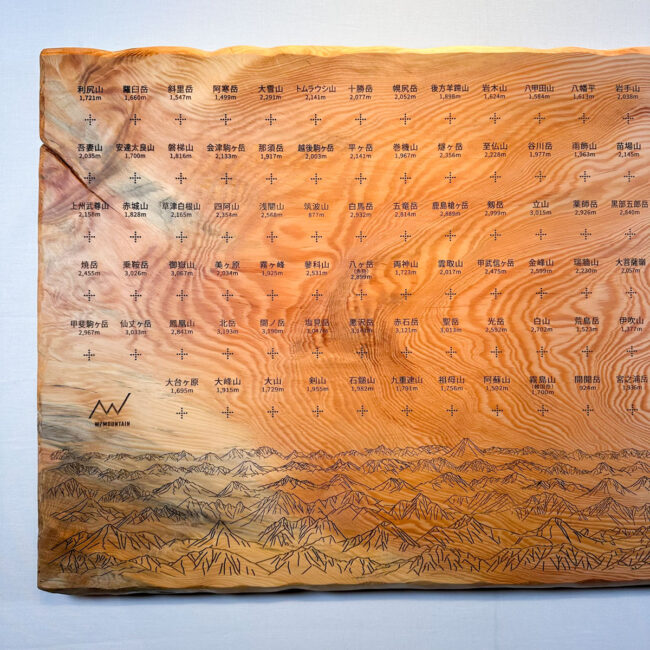 利尻山 羅臼岳 斜里岳 阿寒岳 大雪山 トムラウシ山 十勝岳 幌尻岳 後方羊蹄山 岩木山 八甲田山 八幡平 岩手山
1,721m 1,660m 1,547m 1,499m 2,291m 2,141m 2,077m 2,052m 1,898m 1,624m 1,584m 1,613m 2,038m
吾妻山 安達太良山 磐梯山 会津駒ヶ岳 那須岳 越後駒ヶ岳 平ヶ岳 巻機山 燧ヶ岳 至仏山 谷川岳 雨飾山 苗場山
2,035m 1,700m 1,816m 2,133m 1,917m 2,003m 2,141m 1,967m 2,356m 2,228m 1,977m 1,963m 2,145m
上州武尊山 赤城山 草津白根山 四阿山 浅間山 筑波山 白馬岳 五竜岳 鹿島槍ヶ岳 剱岳 立山 薬師岳 黒部五郎岳
2,158m 1,828m 2,165m 2,354m 2,568m 877m 2,932m 2,814m 2,889m 2,999m 3,015m 2,926m 2,840m
焼岳 乗鞍岳 御嶽山 美ヶ原 霧ヶ峰 蓼科山 八ヶ岳 両神山 雲取山 甲武信ヶ岳 金峰山 瑞牆山 大菩薩嶺
2,455m 3,026m 3,067m 2,034m 1,925m 2,531m 2,899m 1,723m 2,017m 2,475m 2,599m 2,230m 2,057m
甲斐駒ヶ岳 仙丈ヶ岳 鳳凰山 北岳 間ノ岳 塩見岳 悪沢岳 赤石岳 聖岳 光岳 白山 荒島岳 伊吹山
2,967m 3,033m 2,841m 3,193m 3,190m 3,047m 3,141m 3,121m 3,013m 2,592m 2,702m 1,523m 1,377m
大台ヶ原 大峰山 大山 剣山 石鎚山 九重連山 祖母山 阿蘇山 霧島山 開聞岳 宮之浦岳
1,695m 1,915m 1,729m 1,955m 1,982m 1,791m 1,756m 1,592m 1,700m 924m 1,936m
W/MOUNTAIN